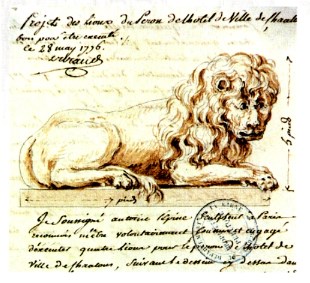 Projets des Lions du Peron de l'hotel de Ville de Chaalons
bon pour être executé
ce 28 may 1776
5 pieds
7 pieds
Je Soussigné antoine lépine Sculpteur a Paris
reconnois m'être volontairement soumis et engagé
d'executer quatre Lions pour le perron hotel de
Ville de Chaalons, Suivant le dessein cy dessus dans